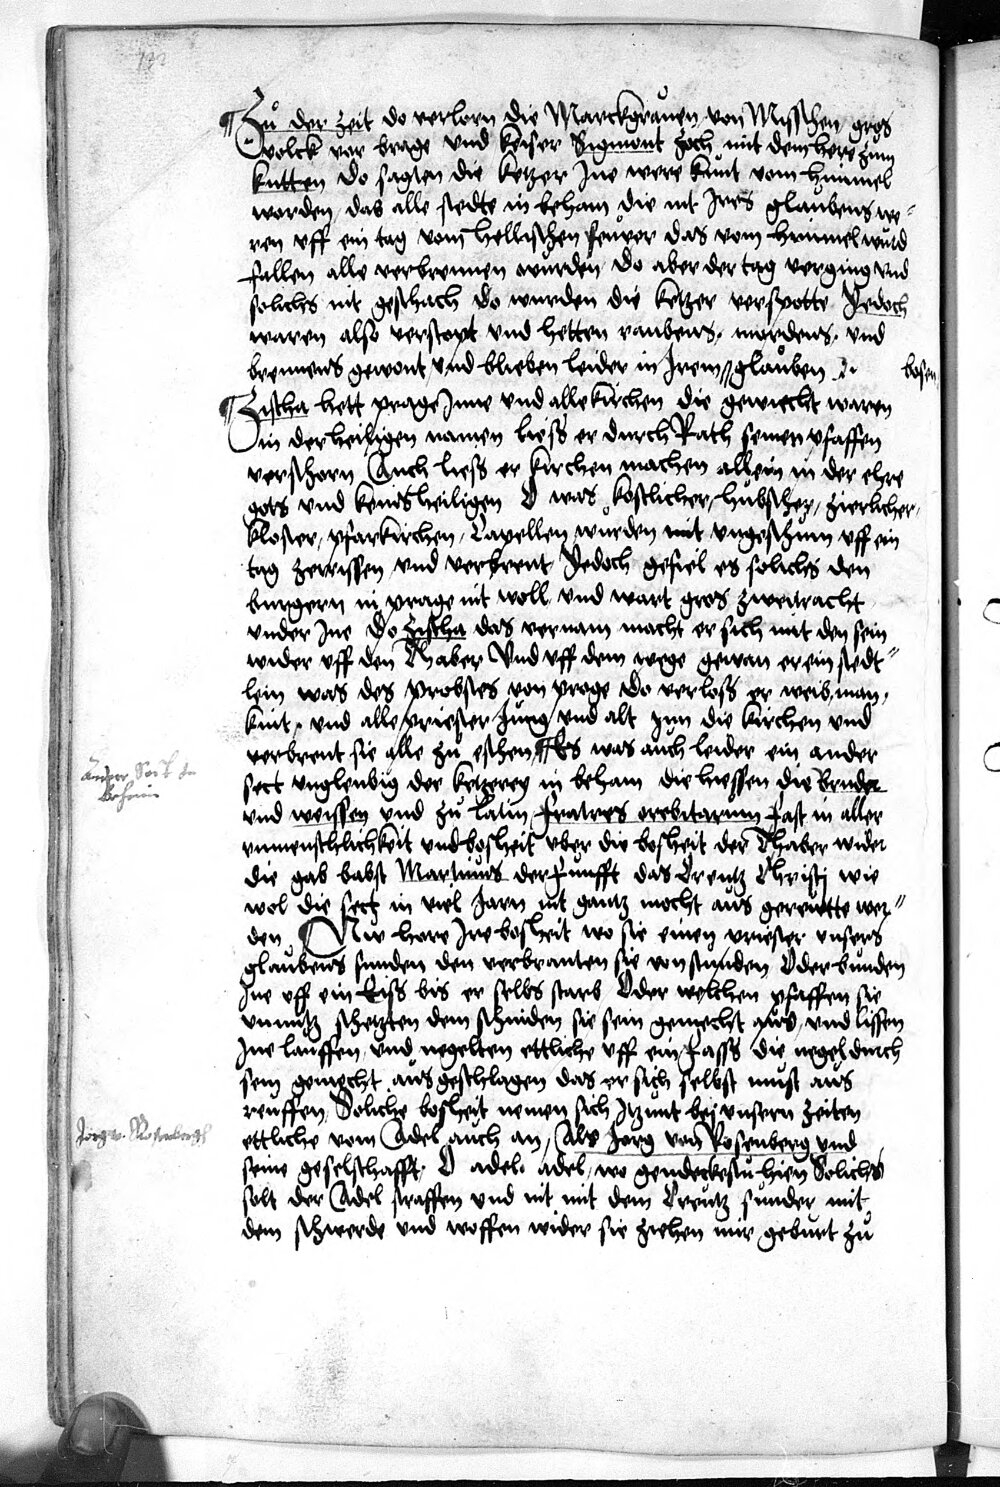 Zu der zeit do verlorn die Marckgrauen von Misschen gros
volck vor brage vnd keiser Sigmont zoch mit dem here zum
kutten Do sagten die ketzer Ine were kunt vom himmel
worden, das alle stedte in beham die nit Ires glaubens we=
ren vff ein tag vom hellischen feuwer das vom himmel wurd
fallen alle verbrennen wurden Do aber der tag verging vnd
solichs nit geschach Do wurden die ketzer verspotte Jedoch
waren also verstopt vnd hetten raubens, mordens, vnd
brennens gewont, vnd blieben leider in Irem // glauben bosen
Zischa hett prage Inne vnd alle kirchen die geweicht waren
in der heiligen namen liess er durch Rath seiner pfaffen
verschorn Auch liess er kirchen machen allein in der ehre
gots vnd keins heiligen O was kostlicher, hubscher, zierlicher,
kloster, pfarkirchen, Capellen wurden mit vngeschum vff ein
tag zerrissen vnd verbrent Jedoch gefiel es solichs den
burgern in prage nit woll vnd wart gros zweitracht
vnder Ine Do Zischa das vernam macht er sich mit den sein
wider vff den Thaber Vnd vff dem wege gewan er ein stedt=
lein was des probstes von prage do verloss er weib, man,
kint, vnd alle priester Jung vnd alt zun die kirchen vnd
verbrent sie alle zu eschen Es was auch leider ein ander
sect vnglenbig der ketzerey in beham die hiessen die bruder
Ander Sect In
Behein
vnd weissen vnd zu latin fratres orebitarum fast in aller
vnmenschlichkeit vnd bosheit vber die bosheit der Thaber wider
die gab babst Martinus der funfft das Creutz Christi wie
wol die sect in viel Jarn nit gantz mocht aus gereutte wer=
den Nu hore Ire bosheit wo sie einen priester vnsers
glaubens funden den verbranten sie von stunden Oder bunden
Ine vff ein Eiss bis er selbs starb Oder welchen pfaffen sie
vnnutz schetzten dem schniden sie sein gemecht aus, vnd lissen
Ine lauffen, vnd negelten ettliche vff ein fass die negel durch
sein gemecht aus geschlagen das er sich selbst must aus
reuffen Soliche bosheit nemen sich Itzunt bei vnsern zeiten
Jorg v. Rosenbergk
ettliche vom Adel auch an, Als Jorg von Rosenberg vnd
seine geselschafft. O adel, adel, wo hien Solichs
solt der Adel straffen vnd nit mit dem Creutz sunder mit
dem schwerde vnd woffen wider sie ziehen mir geburt zu